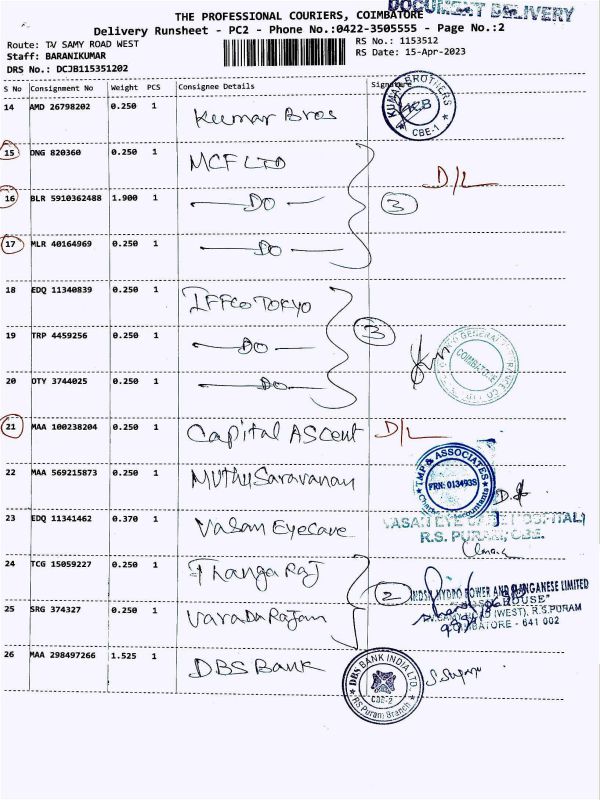 DOCUMENT DELIVERY
THE PROFESSIONAL COURIERS, COIMBATORE
Delivery Runsheet - PC2 - Phone No.:0422-3505555 - Page No.:2
Route: TV SAMY ROAD WEST
RS No.: 1153512
Staff: BARANIKUMAR
RS Date: 15-Apr-2023
DRS No.: DCJB115351202
S No Consignment No Weight PCS Consignee Details Signature
14 AMD 26798202 0.250 1 Kumar Bros KUMAR BROTHERS KB CBE-1
15 DNG 820360 0.250 1 MCF LTD D/L
16 BLR 5910362488 1.900 1 DO 3
17 MLR 40164969 0.250 1 DO
18 EDQ 11340839 0.250 1 IFFCO TOKYO
19 TRP 4459256 0.250 1 DO 3 GENERAL CO COIMBATORE
20 OTY 3744025 0.250 1 DO
21 MAA 100238204 0.250 1 Capital Ascent D/L
22 MAA 569215873 0.250 1 Muthu Saravanan TMP & ASSOCIATES FRN: 013493S Chartered Accountants
23 EDQ 11341462 0.370 1 Vasan Eyecare VASAN EYE CARE HOSPITAL
R.S. PURAM, CBE.
24 TCG 15059227 0.250 1 Thanga Raj 2 INDSIL HYDRO POWER AND MANGANESE LIMITED
HOUSE"
(WEST), R.S.PURAM
25 SRG 374327 0.250 1 Varada Rajan COIMBATORE - 641 002
26 MAA 298497266 1.525 1 DBS Bank DBS BANK INDIA LTD. CBE-2 R S Puram Branch